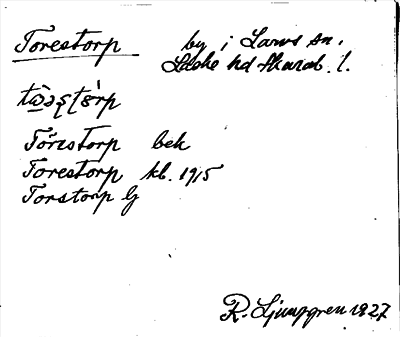 Torestorp by i Larvs sn.
Laske hd Skarab. l.
tɷ̀əʂʈɵ̀rp
Torestorp bek
Torestorp kb. 1915
Torstorp G
R. Ljunggren 1927